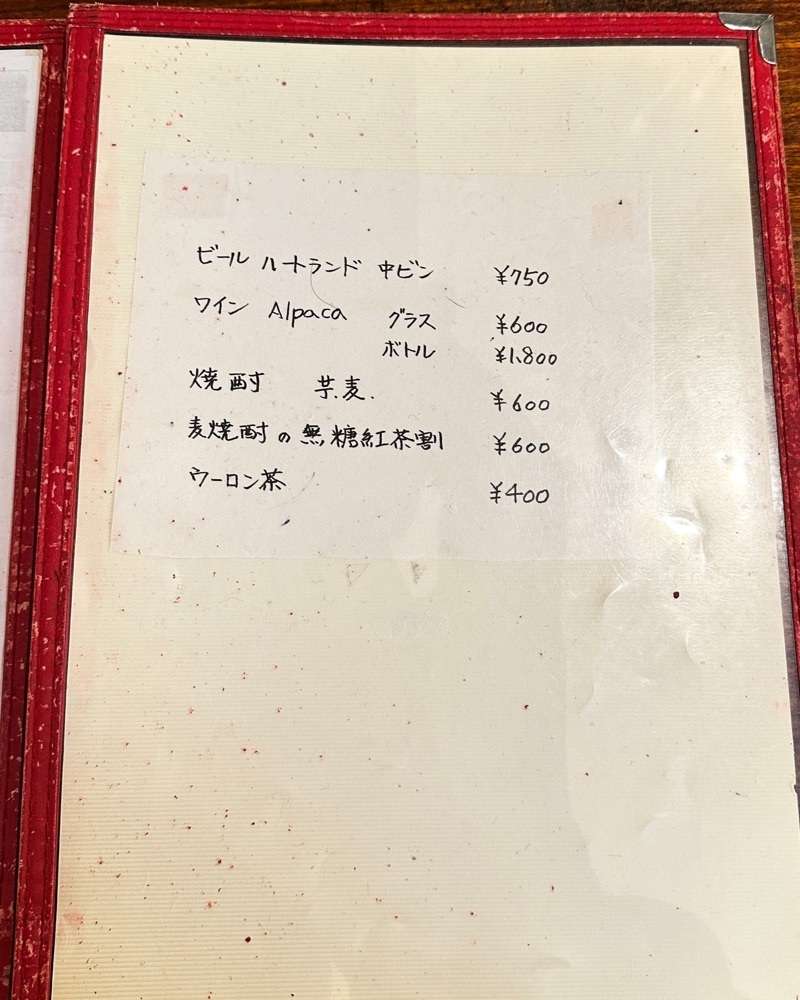 ビール ハートランド 中ビン ¥750
ワイン Alpaca グラス ¥600
ボトル ¥1,800
焼酎 芋.麦. ¥600
麦焼酎の無糖紅茶割 ¥600
ウーロン茶 ¥400